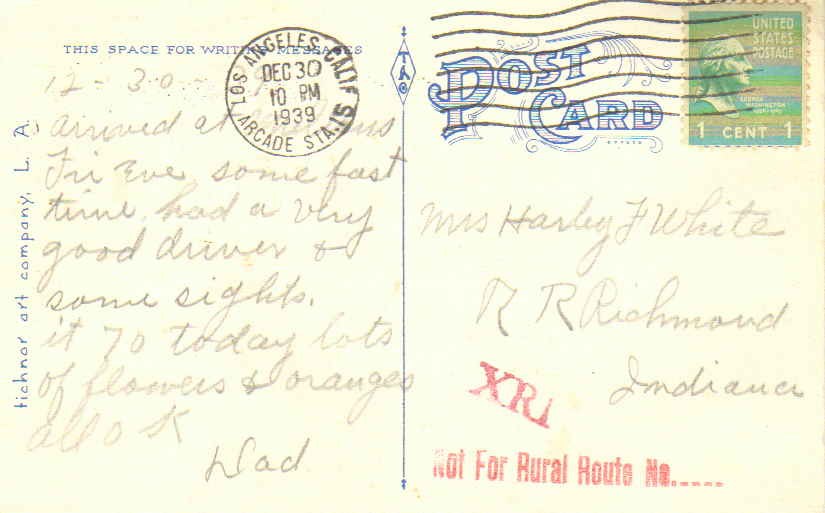 THIS SPACE FOR WRITING MESSAGES
POST CARD
UNITED
STATES
POSTAGE
GEORGE
WASHINGTON
1 CENT 1
LOS ANGELES, CALIF.
DEC 30
10 PM
1939
ARCADE STA. 15
tichnor art company, L. A.
12-30-
arrived at
Fri Eve some fast
time had a very
good driver &
some sights.
it 70 today lots
of flowers & oranges
all o K
Dad
Mrs Harley F White
R R Richmond
Indiana
XR
Not For Rural Route No.-----